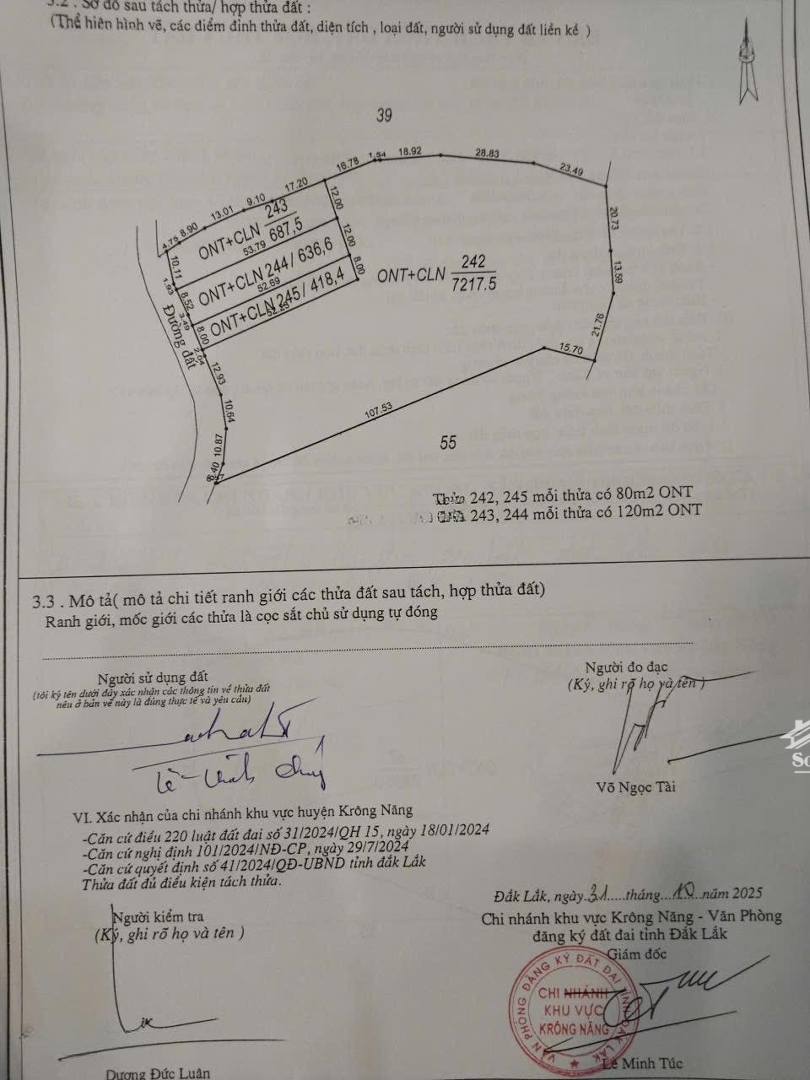 3.2 . Sơ đồ sau tách thửa/ hợp thửa đất :
(Thể hiện hình vẽ, các điểm đỉnh thửa đất, diện tích , loại đất, người sử dụng đất liền kề )
39
4.75 8.90 13.01 9.10 17.20 16.78 1.94 18.92 28.83 23.49
12.00
20.73
ONT+CLN 243/ 687,5
10.11
53.79
12.00
13.59
1.93
ONT+CLN 244/ 636,6
8.52
52.89
8.00
ONT+CLN 242
7217.5
3.49
ONT+CLN 245/ 418,4
8.00
21.76
Đường đất
2.04
15.70
12.93
10.64
107.53
10.87
55
Thửa 242, 245 mỗi thửa có 80m2 ONT
243, 244 mỗi thửa có 120m2 ONT
3.3 . Mô tả( mô tả chi tiết ranh giới các thửa đất sau tách, hợp thửa đất)
Ranh giới, mốc giới các thửa là cọc sắt chủ sử dụng tự đóng
Người sử dụng đất
(tôi ký tên dưới đây xác nhận các thông tin về thửa đất
nêu ở bản vẽ này là đúng thực tế và yêu cầu)
Người đo đạc
(Ký, ghi rõ họ và tên )
Võ Ngọc Tài
VI. Xác nhận của chi nhánh khu vực huyện Krông Năng
-Căn cứ điều 220 luật đất đai số 31/2024/QH 15, ngày 18/01/2024
-Căn cứ nghị định 101/2024/NĐ-CP, ngày 29/7/2024
-Căn cứ quyết định số 41/2024/QĐ-UBND tỉnh đắk Lắk
Thửa đất đủ điều kiện tách thửa.
Đắk Lắk, ngày 31 tháng 10 năm 2025
Người kiểm tra
(Ký, ghi rõ họ và tên )
Chi nhánh khu vực Krông Năng - Văn Phòng
đăng ký đất đai tỉnh Đắk Lắk
Giám đốc
VĂN PHÒNG ĐĂNG KÝ ĐẤT ĐAI TỈNH ĐẮK LẮK
CHI NHÁNH
KHU VỰC
KRÔNG NĂNG
Lê Minh Túc
Dương Đức Luân